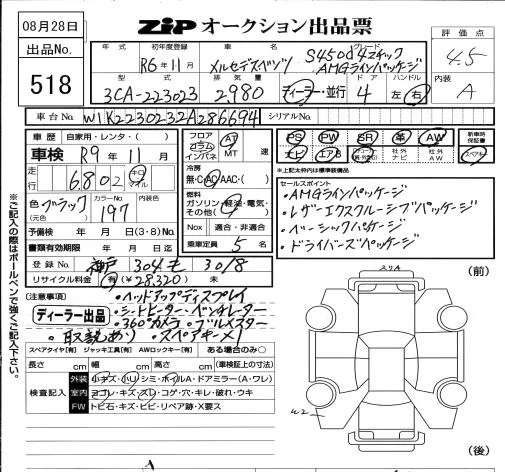 08月28日
出品No.
518
ZIP オークション出品票
評価点
4.5
内装
A
年式 初年度登録 車名 グレード
R6年11月 メルセデスベンツ S450d4マチック
AMGラインパッケージ
型式 排気量 ドア ハンドル
3CA-223023 2,980 ディーラー・並行 4 左・右
車台No. W1K2230232A286694 シリアルNo.
車歴 自家用・レンタ・( )
車検 R9年11月
走行 6,802 キロ マイル
色 (元色) ブラック カラーNo. 197 内装色
予備検 年 月 日(3・8)No.
書類有効期限 年 月 日迄
登録No. 神戸 304 も 30/8
リサイクル料金 有(¥28,320) 未
フロア コラム インパネ AT MT 速
冷房 無・C・AC・AAC・( )
燃料 ガソリン・軽油・電気・その他( )
Nox 適合・非適合
乗車定員 5 名
PS PW SR 革 AW
ナビ エアB 社外ナビ 社外AW
新車時保証書
スペアキー
※上記太枠内は標準装備品
セールスポイント
・AMGラインパッケージ
・レザーエクスクルーシブパッケージ
・ベーシックパッケージ
・ドライバーズパッケージ
(注意事項) ・ヘッドアップディスプレイ
ディーラー出品 ・シートヒーター・ベンチレーター
・360°カメラ・ブルメスター
・取説あり ・スペアキー×1
スペアタイヤ[有] ジャッキ工具[有] AWロックキー[有] ある場合のみ○
長さ cm 幅 cm 高さ cm (車検証上の寸法)
検査記入
外装 小キズ・ハリ・シミ・ホイルA・ドアミラー(A・ワレ)
室内 ヨゴレ・キズ・スレ・コゲ・穴・キレ・破れ・ウキ
FW トビ石・キズ・ヒビ・リペア跡・X要ス
※ご記入の際はボールペンで強くご記入下さい。
(前)
W2
(後)
A